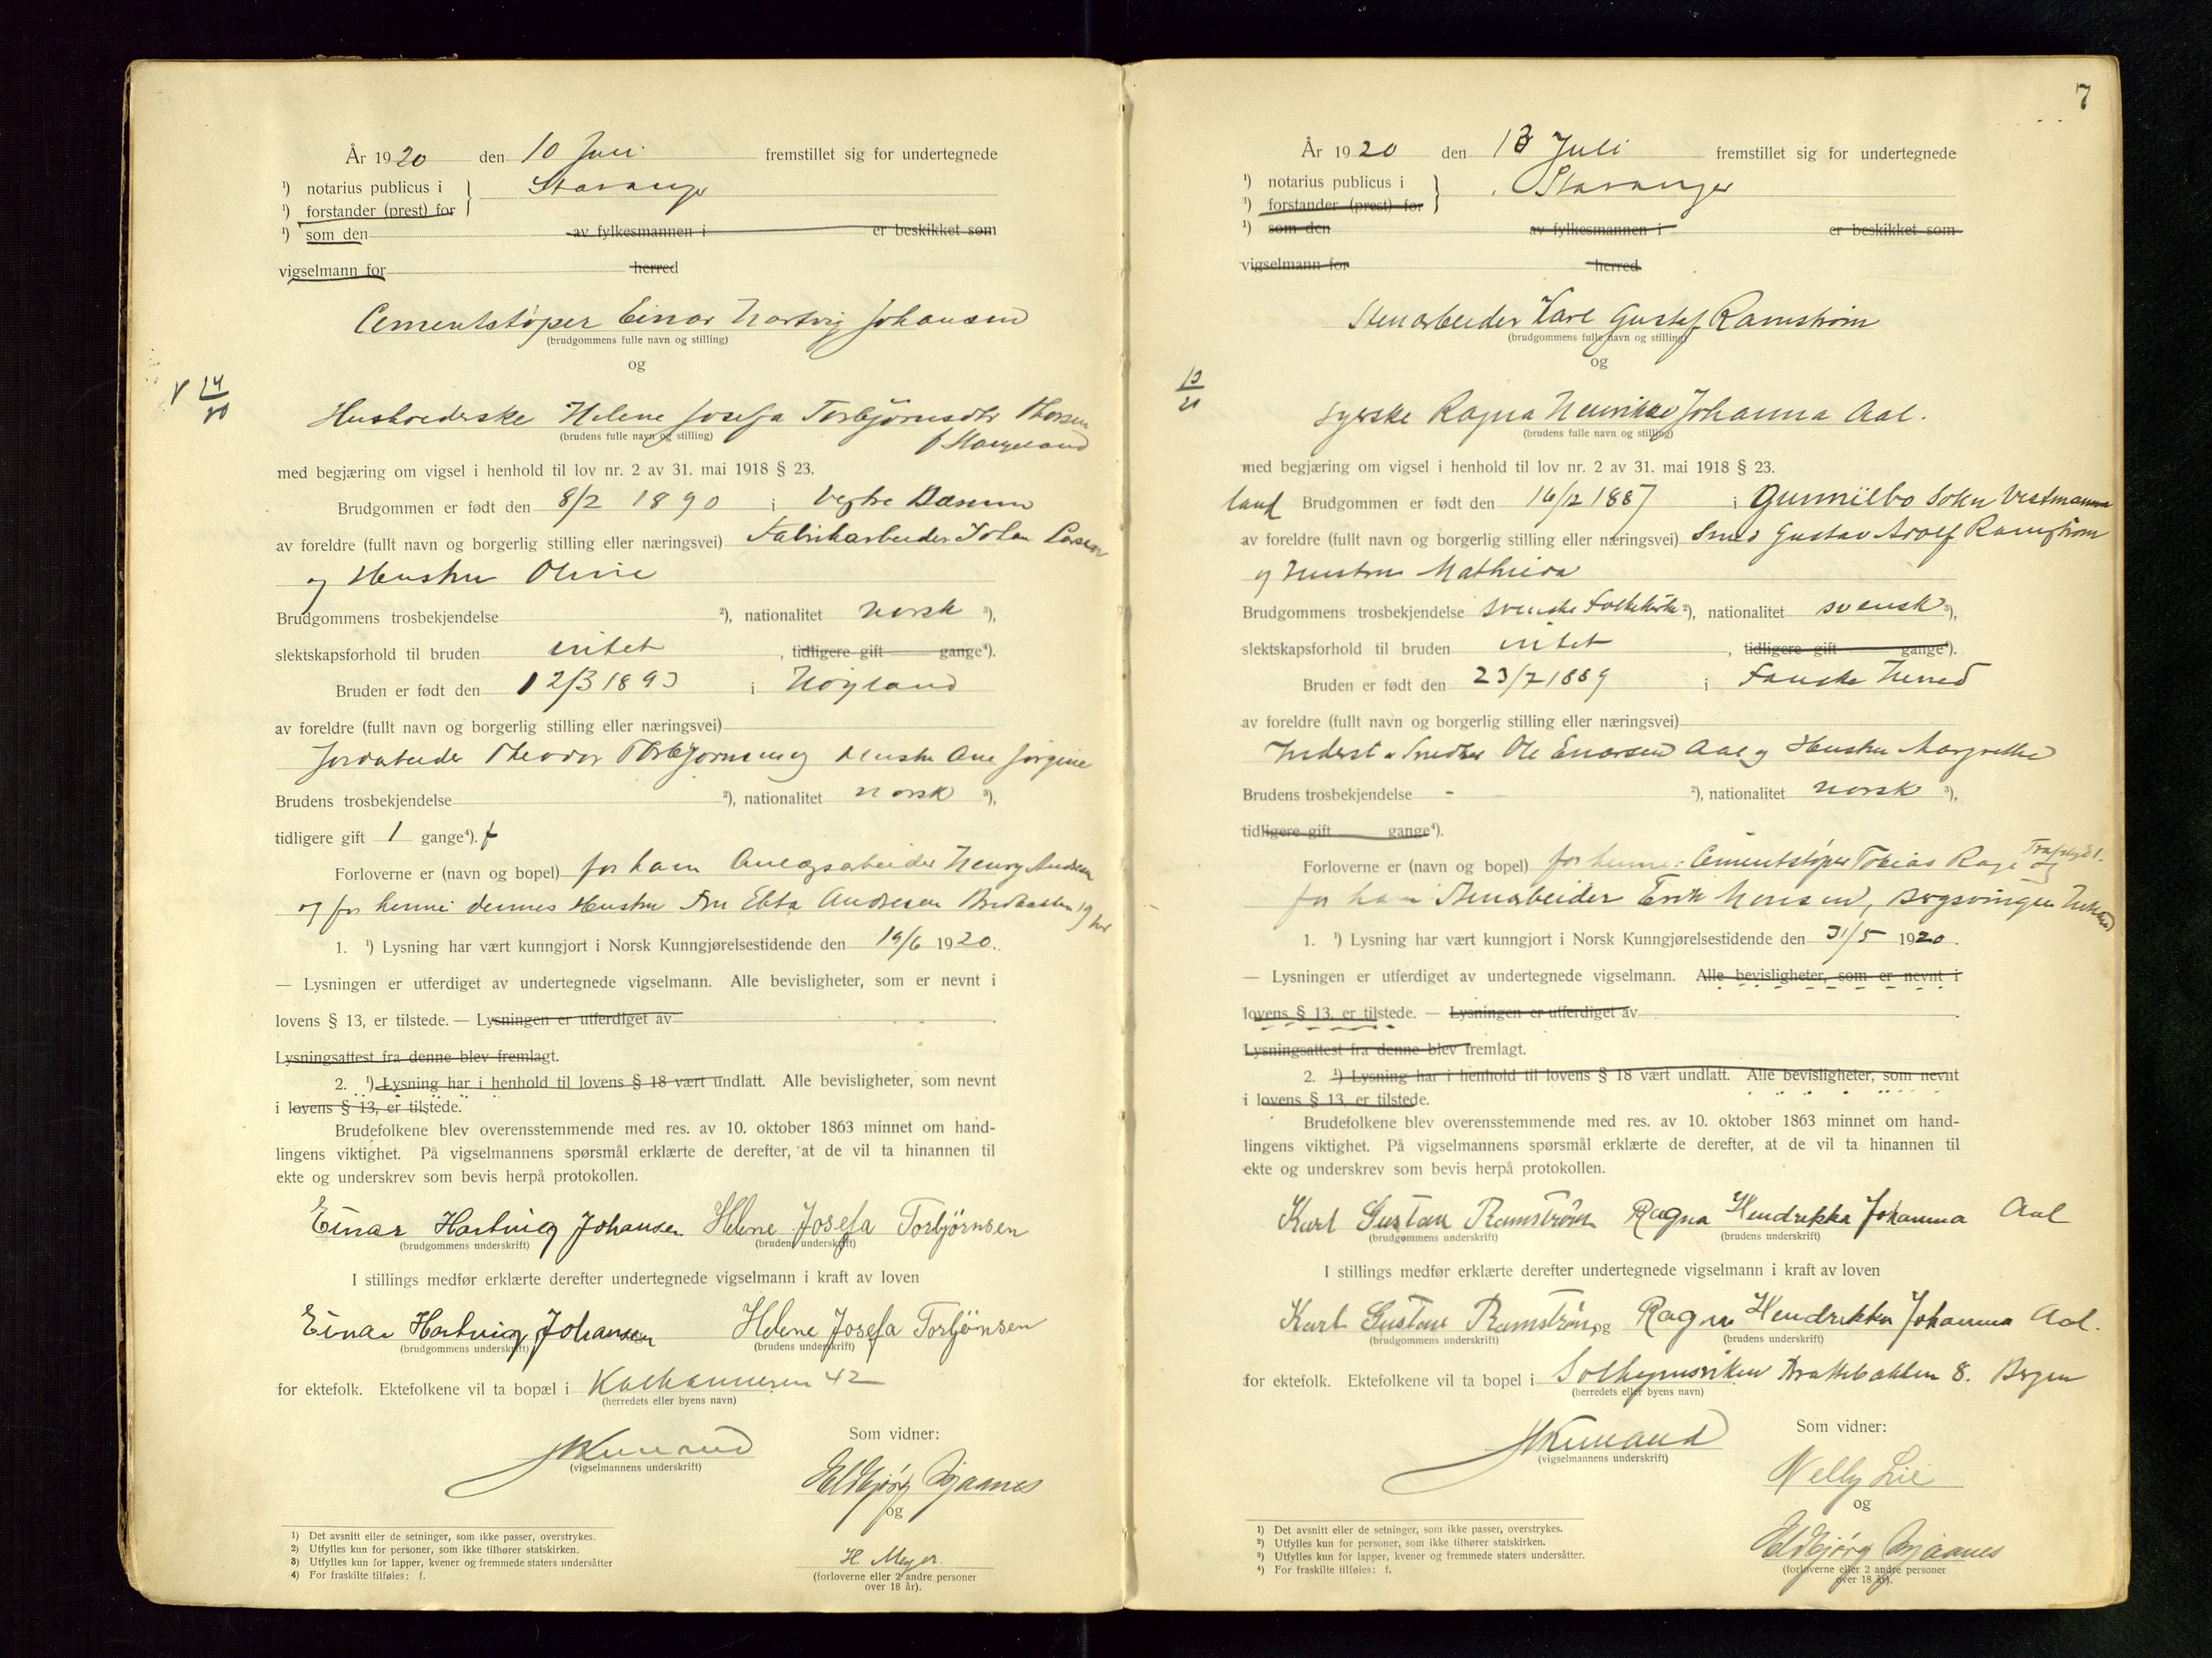 År 1920 den 10 Juli fremstillet sig for undertegnede
¹) notarius publicus i Stavanger
¹) forstander (prest) for
¹) som den av fylkesmannen i er beskikket som
vigselmann for herred
Cementstøper Einar Hartvig Johansen
(brudgommens fulle navn og stilling)
og
14/20
Husholderske Helene Josefa Torbjørnsdtr Thorsen
(brudens fulle navn og stilling)
med begjæring om vigsel i henhold til lov nr. 2 av 31. mai 1918 § 23.
Brudgommen er født den 8/2 1890 i Vestre Bærum
av foreldre (fullt navn og borgerlig stilling eller næringsvei) Fabrikarbeider Johan Larsen
og Hustru Oline
Brudgommens trosbekjendelse ²), nationalitet norsk ³),
slektskapsforhold til bruden intet , tidligere gift gange⁴).
Bruden er født den 12/3 1893 i Høyland
av foreldre (fullt navn og borgerlig stilling eller næringsvei)
Jordarbeider Theodor Torbjørnsen og Hustru Ane Jørgine
Brudens trosbekjendelse ²), nationalitet norsk ³),
tidligere gift 1 gange⁴). f
Forloverne er (navn og bopel) for ham Anlægsarbeider Henry Andresen
og for henne dennes Hustru Fru Ebba Andresen Bredbakken 19 her
1. ¹) Lysning har vært kunngjort i Norsk Kunngjørelsestidende den 19/6 1920.
— Lysningen er utferdiget av undertegnede vigselmann. Alle bevisligheter, som er nevnt i
lovens § 13, er tilstede. — Lysningen er utferdiget av
Lysningsattest fra denne blev fremlagt.
2. ¹) Lysning har i henhold til lovens § 18 vært undlatt. Alle bevisligheter, som nevnt
i lovens § 13, er tilstede.
Brudefolkene blev overensstemmende med res. av 10. oktober 1863 minnet om hand-
lingens viktighet. På vigselmannens spørsmål erklærte de derefter, at de vil ta hinannen til
ekte og underskrev som bevis herpå protokollen.
Einar Hartvig Johansen Helene Josefa Torbjørnsen
(brudgommens underskrift) (brudens underskrift)
I stillings medfør erklærte derefter undertegnede vigselmann i kraft av loven
Einar Hartvig Johansen Helene Josefa Torbjørnsen
(brudgommens underskrift) (brudens underskrift)
for ektefolk. Ektefolkene vil ta bopæl i 42
(herredets eller byens navn)
Som vidner:
(vigselmannens underskrift)
Eldbjørg Bjaanes
og
H. Meyer.
(forloverne eller 2 andre personer
over 18 år).
1) Det avsnitt eller de setninger, som ikke passer, overstrykes.
2) Utfylles kun for personer, som ikke tilhører statskirken.
3) Utfylles kun for lapper, kvener og fremmede staters undersåtter
4) For fraskilte tilføies: f.
7
År 1920 den 13 Juli fremstillet sig for undertegnede
¹) notarius publicus i Stavanger
¹) forstander (prest) for
¹) som den av fylkesmannen i er beskikket som
vigselmann for herred
Stenarbeider Karl Gustaf Ramstrøm
(brudgommens fulle navn og stilling)
og
Syerske Ragna Henrikke Johanna Aal.
(brudens fulle navn og stilling)
med begjæring om vigsel i henhold til lov nr. 2 av 31. mai 1918 § 23.
land Brudgommen er født den 16/12 1887 i Gunnilbo Sokn Vestmanna
av foreldre (fullt navn og borgerlig stilling eller næringsvei) Smed Gustav Adolf Ramstrøm
og Hustru Mathilda
Brudgommens trosbekjendelse svenske Folkekirke ²), nationalitet svensk ³),
slektskapsforhold til bruden intet , tidligere gift gange⁴).
Bruden er født den 23/7 1889 i Fauske Herred
av foreldre (fullt navn og borgerlig stilling eller næringsvei)
Inderst Ole Enarsen Aal og Hustru Margrethe
Brudens trosbekjendelse - ²), nationalitet norsk ³),
tidligere gift gange⁴).
Forloverne er (navn og bopel) for henne: Cementstøper Tobias Rage og
for ham Stenarbeider Erik
1. ¹) Lysning har vært kunngjort i Norsk Kunngjørelsestidende den 31/5 1920.
— Lysningen er utferdiget av undertegnede vigselmann. Alle bevisligheter, som er nevnt i
lovens § 13, er tilstede. — Lysningen er utferdiget av
Lysningsattest fra denne blev fremlagt.
2. ¹) Lysning har i henhold til lovens § 18 vært undlatt. Alle bevisligheter, som nevnt
i lovens § 13, er tilstede.
Brudefolkene blev overensstemmende med res. av 10. oktober 1863 minnet om hand-
lingens viktighet. På vigselmannens spørsmål erklærte de derefter, at de vil ta hinannen til
ekte og underskrev som bevis herpå protokollen.
Karl Gustav Ramstrøm Ragna Hendrikka Johanna Aal
(brudgommens underskrift) (brudens underskrift)
I stillings medfør erklærte derefter undertegnede vigselmann i kraft av loven
Karl Gustav Ramstrøm og Ragna Hendrikka Johanna Aal.
(brudgommens underskrift) (brudens underskrift)
for ektefolk. Ektefolkene vil ta bopel i Solheimsviken Brattebakken 8. Bergen
(herredets eller byens navn)
Som vidner:
(vigselmannens underskrift)
Nelly Lie
og
Eldbjørg Bjaanes
(forloverne eller 2 andre personer
over 18 år).
¹) Det avsnitt eller de setninger, som ikke passer, overstrykes.
²) Utfylles kun for personer, som ikke tilhører statskirken.
³) Utfylles kun for lapper, kvener og fremmede staters undersåtter.
⁴) For fraskilte tilføies: f.